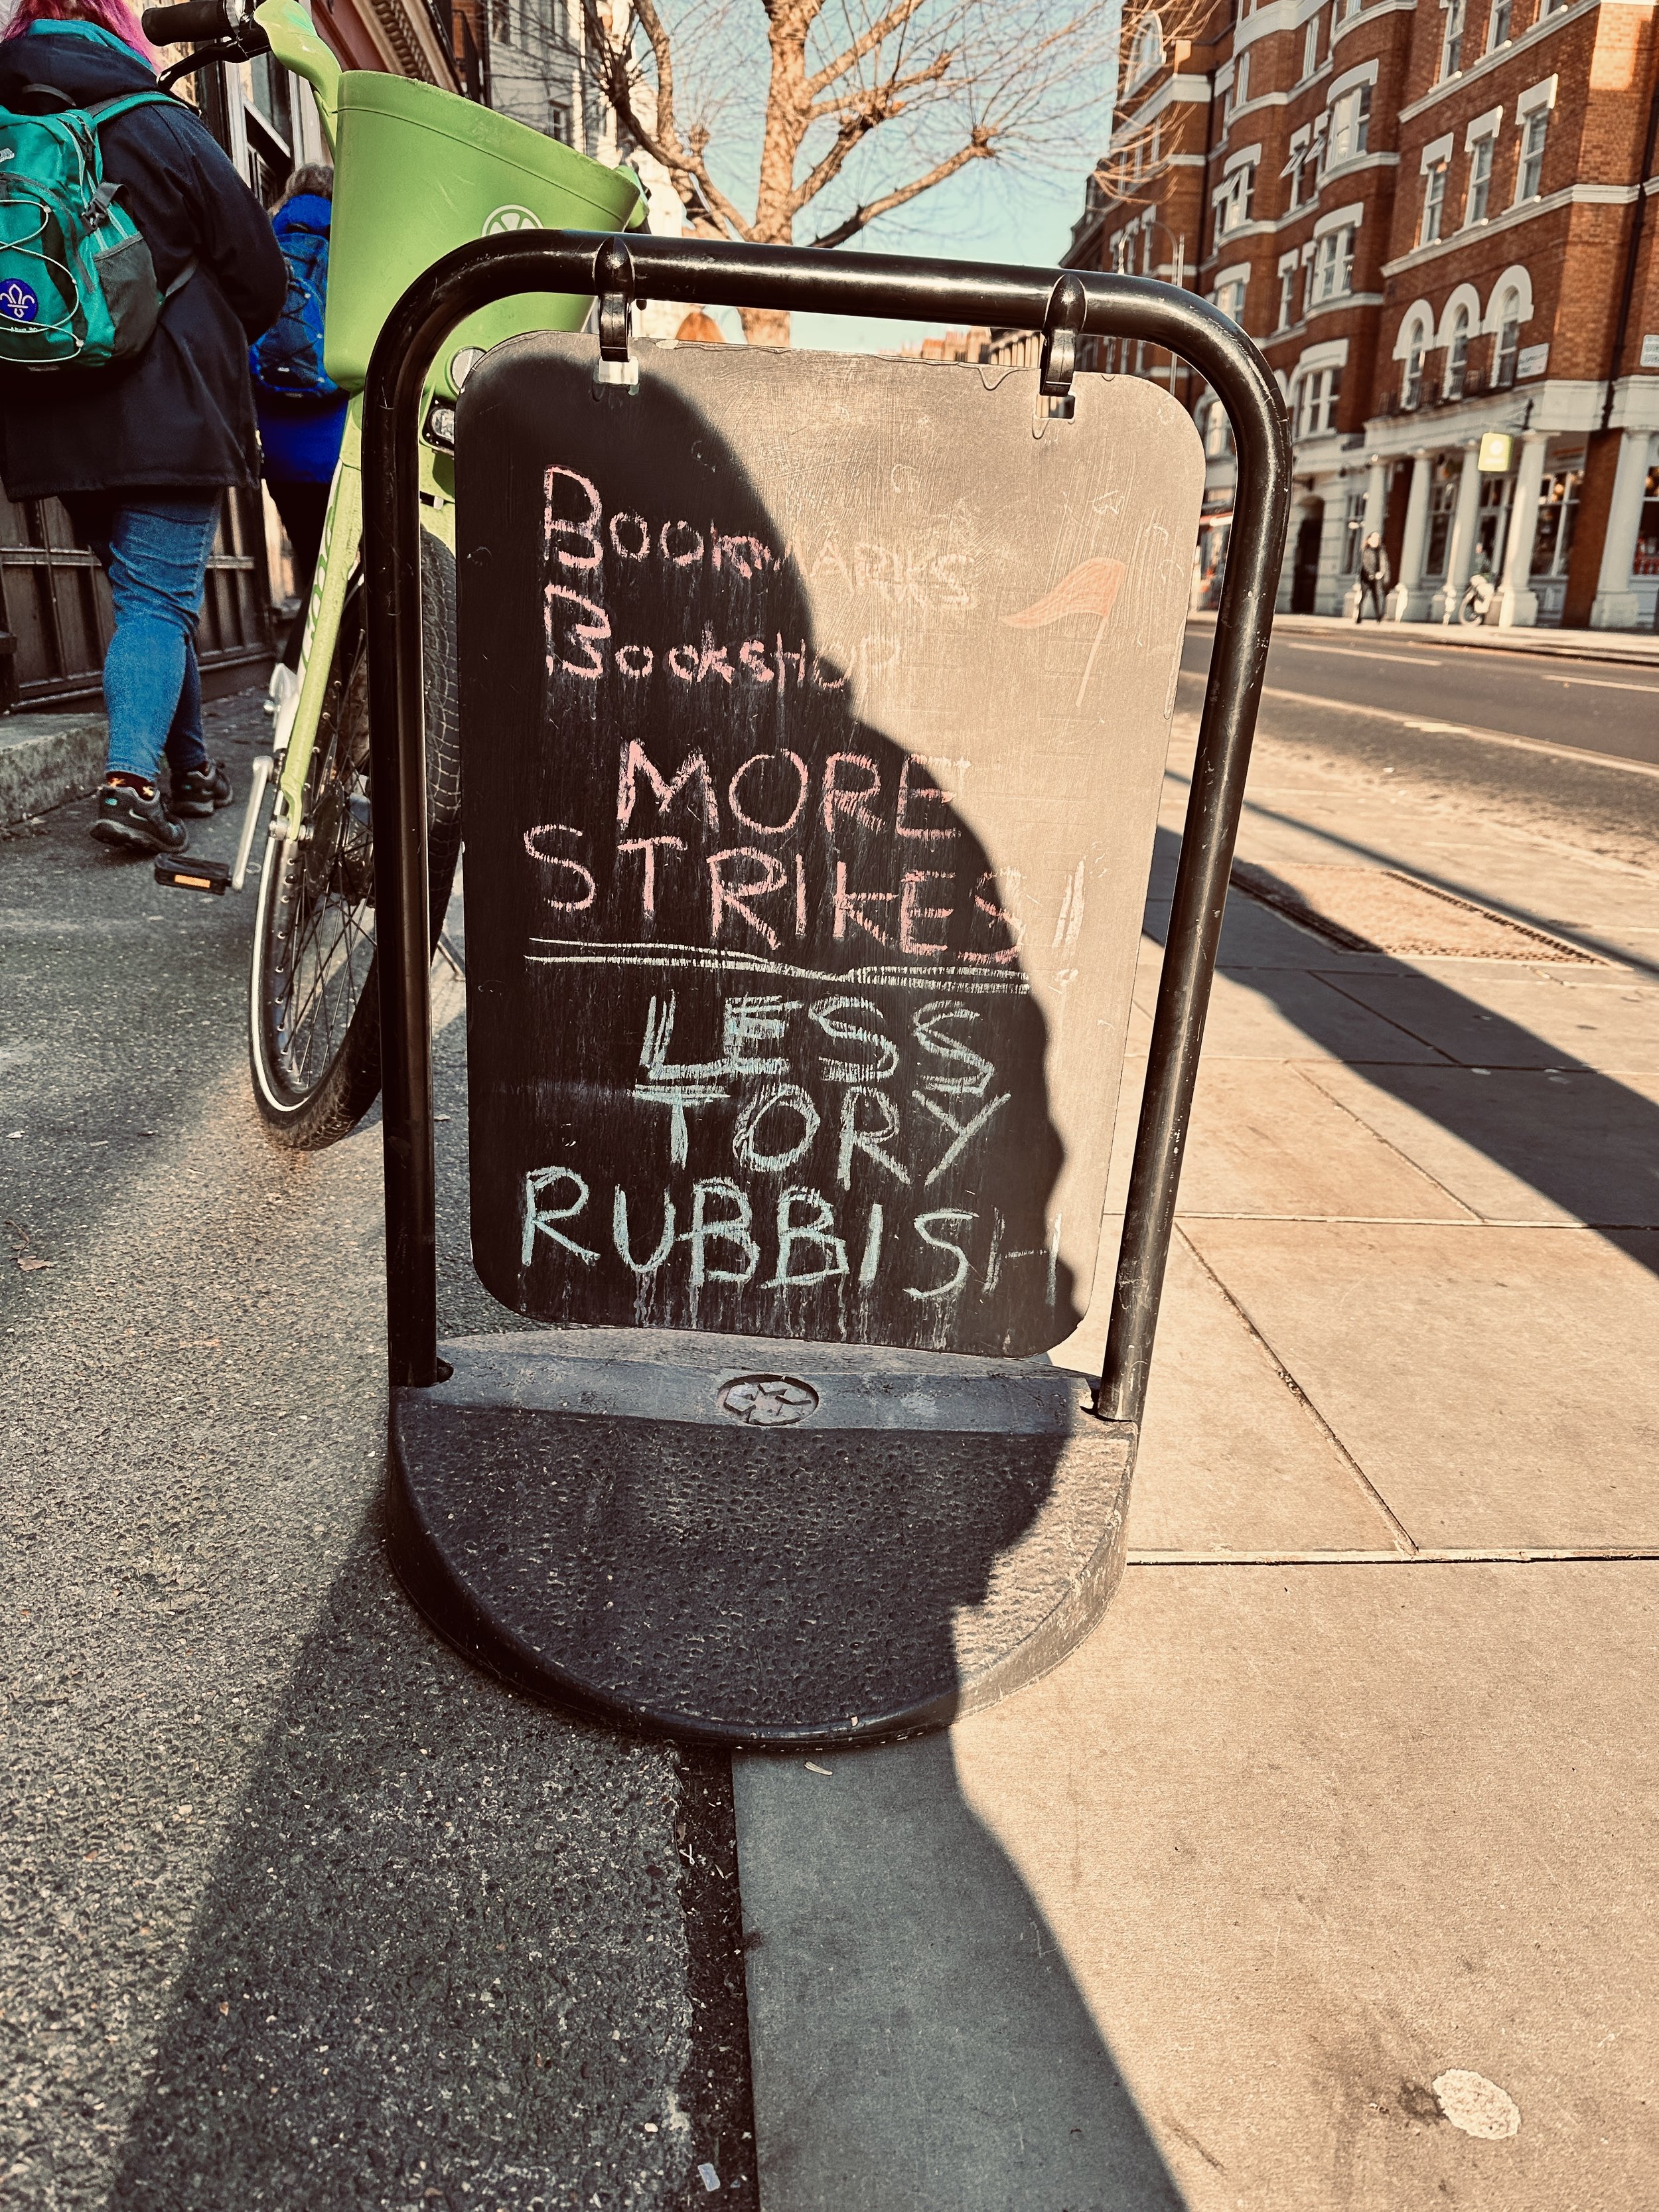 BOOKMARKS
BOOKSHOP
MORE
STRIKES!
LESS
TORY
RUBBISH